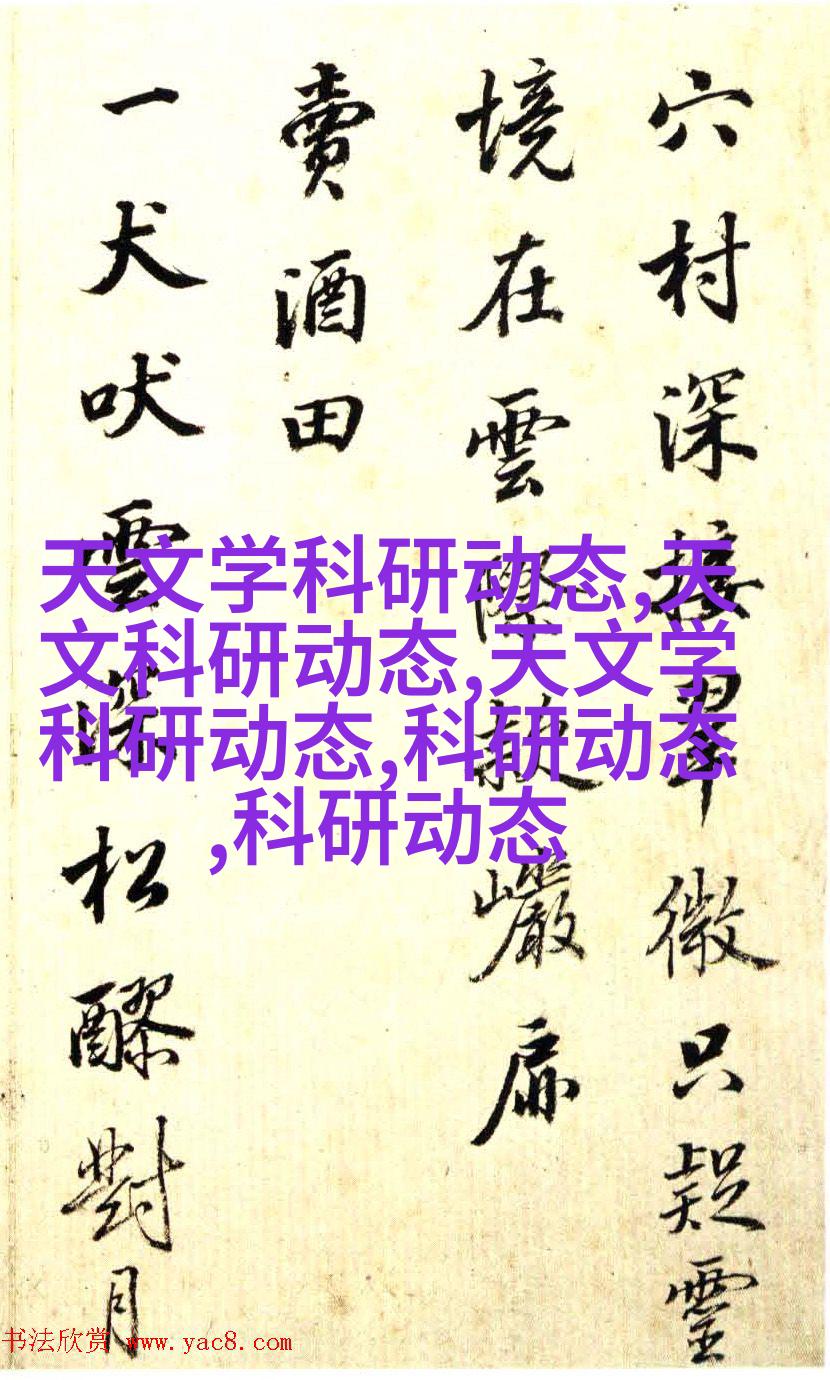 穴村深接翠微只疑靈
境在雲際敲巖扉
賣酒田
一犬吠雲深松醪對月
天文学科研动态,天
文科研动态,天文学
科研动态,科研动态
,科研动态
书法欣赏 www.yac8.com